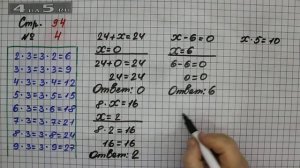 4 на 5.ru
Стр. 94
№ 4
2·3=3·2=6
3·3=3·3=9
4·3=3·4=12
5·3=3·5=15
6·3=3·6=18
7·3=3·7=21
8·3=3·8=24
9·3=3·9=27
24+x=24
x=0
24+0=24
24=24
Ответ: 0
8·x=16
x=2
8·2=16
16=16
Ответ: 2
x-6=0
x=6
6-6=0
0=0
Ответ: 6
x·5=10